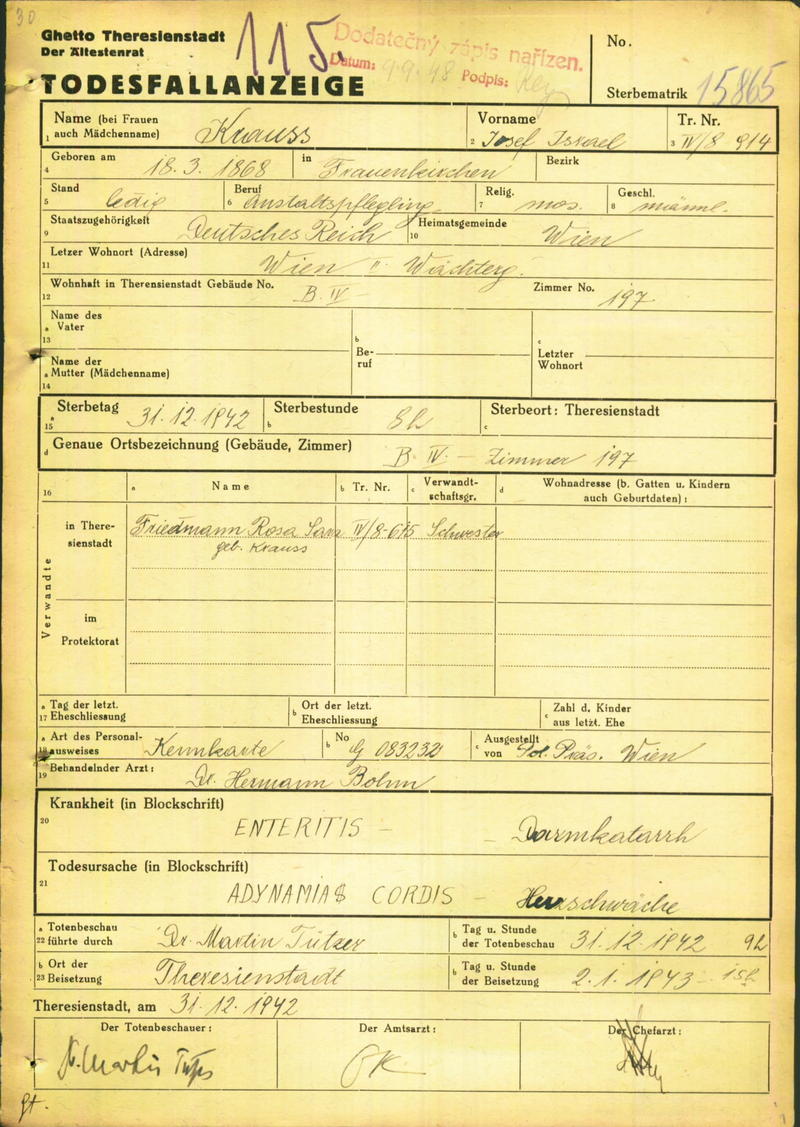 30
Ghetto Theresienstadt
Der Ältestenrat
115.
Dodatečný zápis nařízen.
Datum: 9.9.48 Podpis:
No.
TODESFALLANZEIGE
Sterbematrik 15865
Name (bei Frauen auch Mädchenname) Krauss
1
Vorname
2 Josef Israel
Tr. Nr.
3 IV/8 914
Geboren am 18.3.1868 in Frauenkirchen Bezirk
4
Stand ledig Beruf Anstaltspflegling Relig. mos. Geschl. männl.
5 6 7 8
Staatszugehörigkeit Deutsches Reich Heimatsgemeinde Wien
9 10
Letzer Wohnort (Adresse)
11 Wien II. Wächterg.
Wohnhaft in Therensienstadt Gebäude No. B. IV Zimmer No. 197
12
Name des
a Vater
13
b Beruf
c Letzter Wohnort
Name der
a Mutter (Mädchenname)
14
Sterbetag 31.12.1942 Sterbestunde 8h Sterbeort: Theresienstadt
a 15 b c
d Genaue Ortsbezeichnung (Gebäude, Zimmer) B. IV - Zimmer 197
16 a Name b Tr. Nr. c Verwandtschaftsgr. d Wohnadresse (b. Gatten u. Kindern auch Geburtdaten):
Verwandte
in Theresienstadt
Friedmann Rosa Sara IV/8-675 Schwester
geb. Krauss
im Protektorat
a Tag der letzt.
17 Eheschliessung
b Ort der letzt. Eheschliessung
c Zahl d. Kinder aus letzt. Ehe
a Art des Personalausweises Kennkarte b No G 083232 c Ausgestellt von Pol. Präs. Wien
19 Behandelnder Arzt: Dr. Hermann Bohm
Krankheit (in Blockschrift)
20 ENTERITIS - - Darmkatarrh
Todesursache (in Blockschrift)
21 ADYNAMIA CORDIS - Herzschwäche
a Totenbeschau
22 führte durch Dr. Martin Tutzer b Tag u. Stunde der Totenbeschau 31.12.1942 9h
b Ort der
23 Beisetzung Theresienstadt b Tag u. Stunde der Beisetzung 2.1.1943 - 15h
Theresienstadt, am 31.12.1942
Der Totenbeschauer: Der Amtsarzt: Der Chefarzt: